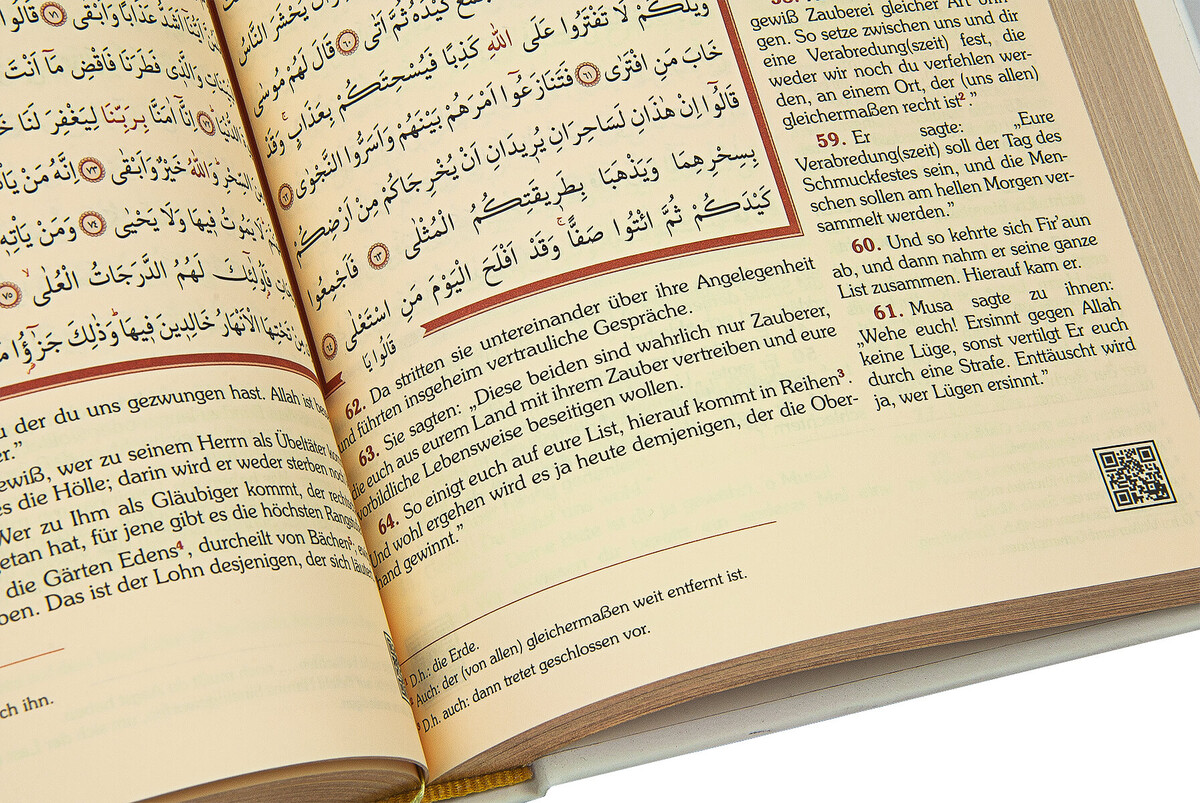 مِنْ اَيُّنَٓا اَشَدُّ عَذَابًا وَاَبْقٰى ﴿٧١﴾ قَالُوا
الْبَيِّنَاتِ وَالَّذٖى فَطَرَنَا فَاقْضِ مَٓا اَنْتَ
الدُّنْيَا ﴿٧٢﴾ اِنَّٓا اٰمَنَّا بِرَبِّنَا لِيَغْفِرَ لَنَا
مِنَ السِّحْرِ وَاللّٰهُ خَيْرٌ وَاَبْقٰى ﴿٧٣﴾ اِنَّهُ مَنْ يَاْتِ
لَا يَمُوتُ فٖيهَا وَلَا يَحْيٰى ﴿٧٤﴾ وَمَنْ يَاْتِهٖ
فَاُولٰٓئِكَ لَهُمُ الدَّرَجَاتُ الْعُلٰى ﴿٧٥﴾
تَحْتِهَا الْاَنْهَارُ خَالِدٖينَ فٖيهَا وَذٰلِكَ جَزٰٓؤُا
u der du uns gezwungen hast. Allah ist
er.”
ewiß, wer zu seinem Herrn als Übeltäter
es die Hölle; darin wird er weder sterben
Wer zu Ihm als Gläubiger kommt, der
getan hat, für jene gibt es die höchsten
die Gärten Edens⁴, durcheilt von Bächen⁵;
ben. Das ist der Lohn desjenigen, der sich
ch ihn.
يُحْشَرَ النَّاسُ
كَيْدَهُ ثُمَّ اَتٰى ﴿٦٠﴾ قَالَ لَهُمْ مُوسٰى
وَيْلَكُمْ لَا تَفْتَرُوا عَلَى اللّٰهِ كَذِبًا فَيُسْحِتَكُمْ بِعَذَابٍ وَقَدْ
خَابَ مَنِ افْتَرٰى ﴿٦١﴾ فَتَنَازَعُٓوا اَمْرَهُمْ بَيْنَهُمْ وَاَسَرُّوا النَّجْوٰى ﴿٦٢﴾
قَالُٓوا اِنْ هٰذَانِ لَسَاحِرَانِ يُرٖيدَانِ اَنْ يُخْرِجَاكُمْ مِنْ اَرْضِكُمْ
بِسِحْرِهِمَا وَيَذْهَبَا بِطَرٖيقَتِكُمُ الْمُثْلٰى ﴿٦٣﴾ فَاَجْمِعُوا
كَيْدَكُمْ ثُمَّ ائْتُوا صَفًّا وَقَدْ اَفْلَحَ الْيَوْمَ مَنِ اسْتَعْلٰى ﴿٦٤﴾
قَالُوا يَا
gewiß Zauberei gleicher Art
gen. So setze zwischen uns und dir
eine Verabredung(szeit) fest, die
weder wir noch du verfehlen wer-
den, an einem Ort, der (uns allen)
gleichermaßen recht ist².”
59. Er sagte: „Eure
Verabredung(szeit) soll der Tag des
Schmuckfestes sein, und die Men-
schen sollen am hellen Morgen ver-
sammelt werden.”
60. Und so kehrte sich Fir’aun
ab, und dann nahm er seine ganze
List zusammen. Hierauf kam er.
61. Musa sagte zu ihnen:
„Wehe euch! Ersinnt gegen Allah
keine Lüge, sonst vertilgt Er euch
durch eine Strafe. Enttäuscht wird
ja, wer Lügen ersinnt.”
62. Da stritten sie untereinander über ihre Angelegenheit
und führten insgeheim vertrauliche Gespräche.
63. Sie sagten: „Diese beiden sind wahrlich nur Zauberer,
die euch aus eurem Land mit ihrem Zauber vertreiben und eure
vorbildliche Lebensweise beseitigen wollen.
64. So einigt euch auf eure List, hierauf kommt in Reihen³.
Und wohl ergehen wird es ja heute demjenigen, der die Ober-
hand gewinnt.”
¹ D.h.: die Erde.
² Auch: der (von allen) gleichermaßen weit entfernt ist.
³ D.h. auch: dann tretet geschlossen vor.